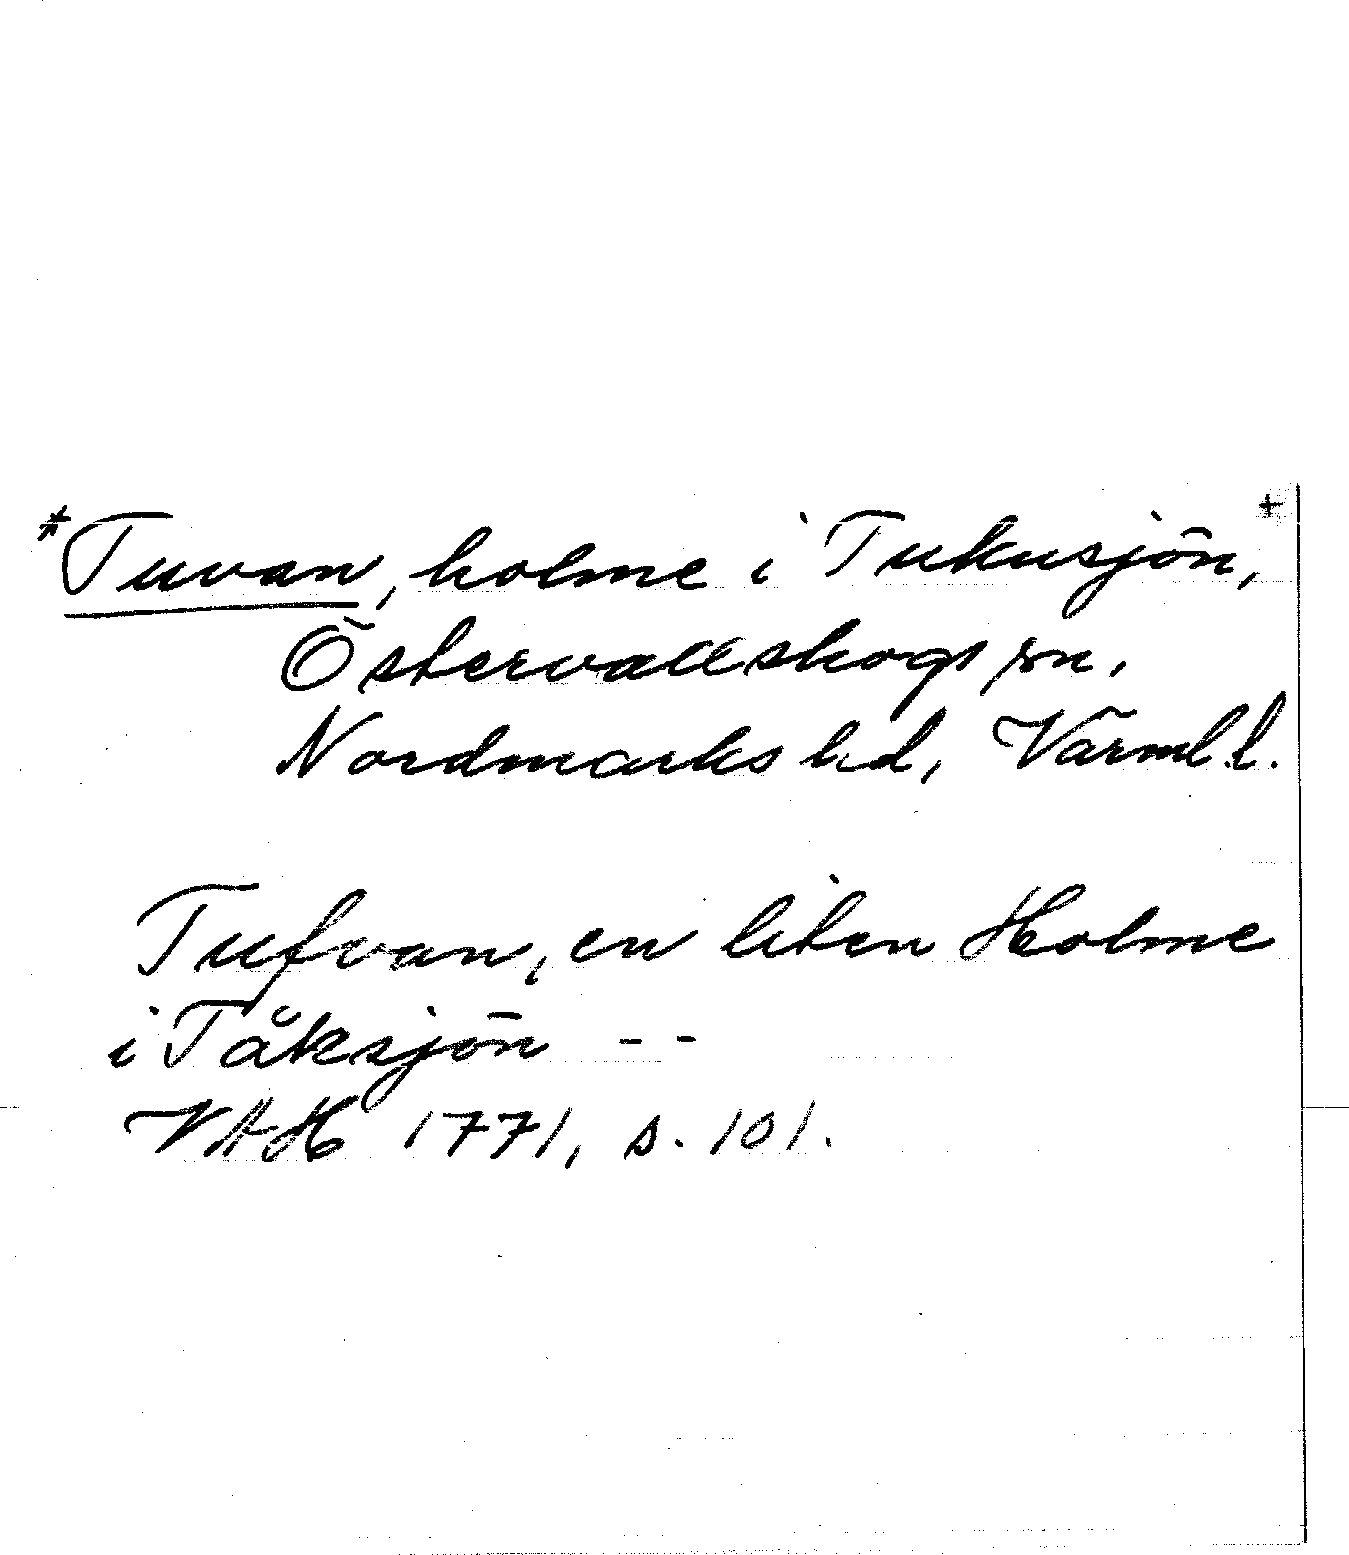 *Tuvan, holme i Tukusjön, +
Östervallskogs sn,
Nordmarks hd, Värml. l.
Tufvan, en liten Holme
i Tåksjön - -
VAH 1771, s. 101.